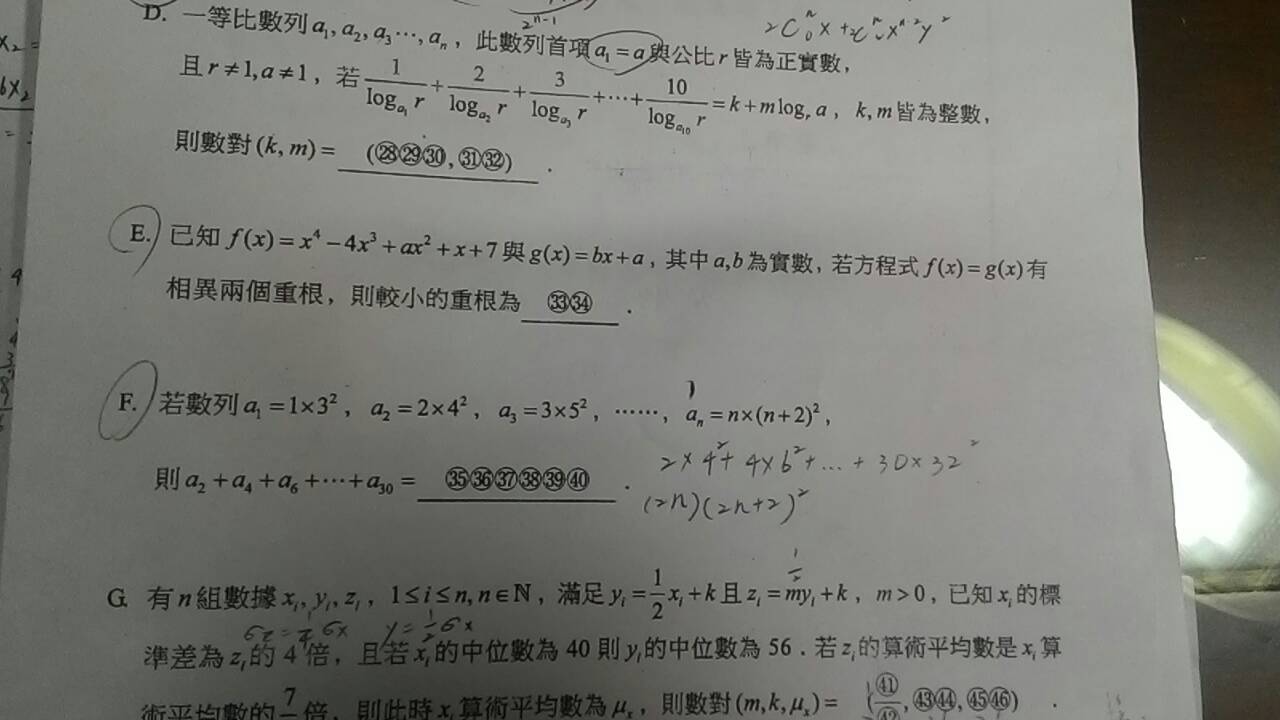 D. 一等比數列 a₁, a₂, a₃ ⋯, aₙ，此數列首項 a₁ = a 與公比 r 皆為正實數，
2C₀ⁿx
且 r ≠ 1, a ≠ 1，若 1/log_{a₁} r + 2/log_{a₂} r + 3/log_{a₃} r + ⋯ + 10/log_{a₁₀} r = k + m logᵣ a，k, m 皆為整數，
則數對 (k, m) = (㉘㉙㉚, ㉛㉜) ．
E. 已知 f(x) = x⁴ − 4x³ + ax² + x + 7 與 g(x) = bx + a，其中 a, b 為實數，若方程式 f(x) = g(x) 有
相異兩個重根，則較小的重根為 ㉝㉞ ．
F. 若數列 a₁ = 1×3²，a₂ = 2×4²，a₃ = 3×5²，⋯⋯，aₙ = n×(n+2)²，
2×4² + 4×6² + ⋯ + 30×32²
則 a₂ + a₄ + a₆ + ⋯ + a₃₀ = ㉟㊱㊲㊳㊴㊵ ．
(2n)(2n+2)²
G. 有 n 組數據 xᵢ, yᵢ, zᵢ，1 ≤ i ≤ n, n ∈ ℕ，滿足 yᵢ = 1/2 xᵢ + k 且 zᵢ = myᵢ + k，m > 0，已知 xᵢ 的標
準差為 zᵢ 的 4 倍，且若 xᵢ 的中位數為 40 則 yᵢ 的中位數為 56．若 zᵢ 的算術平均數是 xᵢ 算
術平均數的 7 倍，則此時 xᵢ 算術平均數為 μₓ，則數對 (m, k, μₓ) = (㊶/㊷, ㊸㊹, ㊺㊻) ．